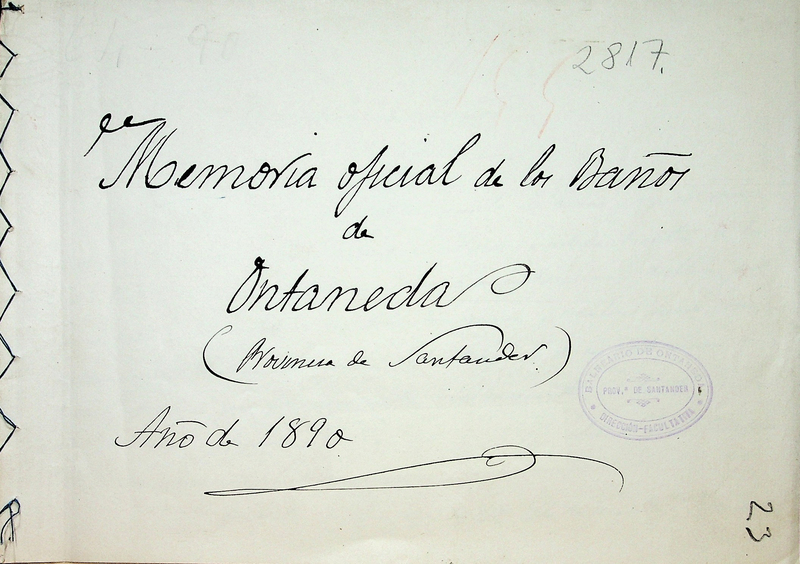 2817.
Memoria oficial de los Baños
de
Ontaneda
(Provincia de Santander.)
BALNEARIO DE ONTANEDA
PROV.ª DE SANTANDER
DIRECCIÓN-FACULTATIVA
Año de 1890
23